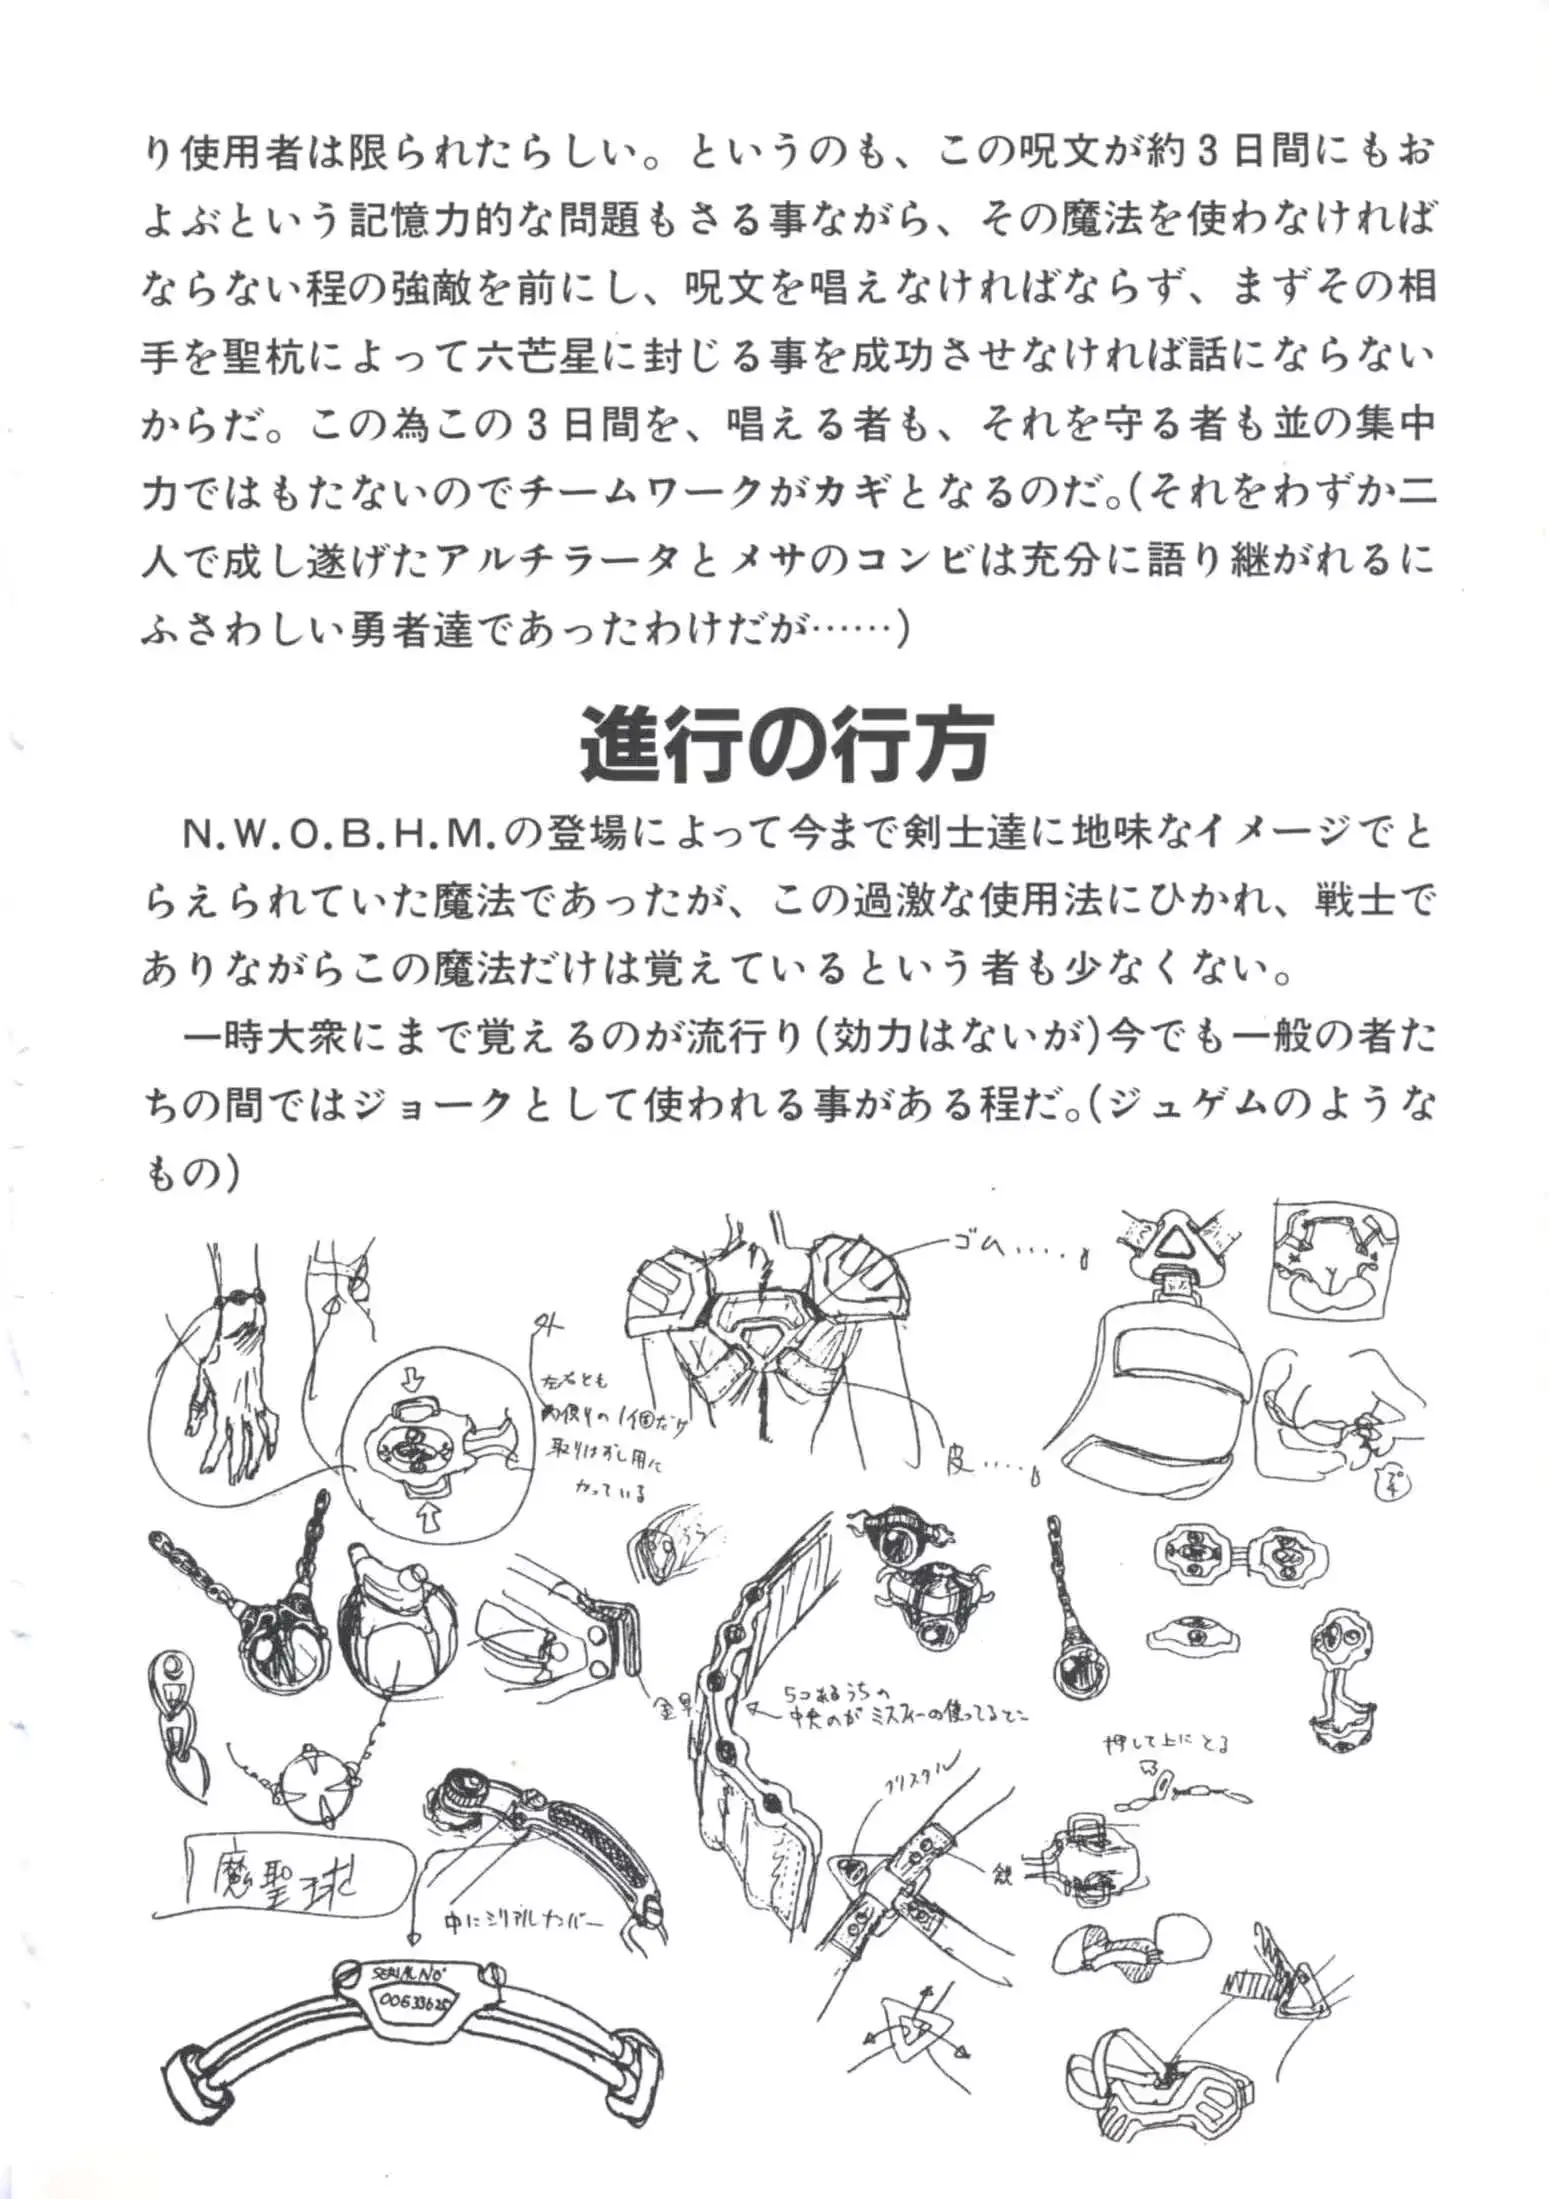 り使用者は限られたらしい。というのも、この呪文が約3日間にもお
よぶという記憶力的な問題もさる事ながら、その魔法を使わなければ
ならない程の強敵を前にし、呪文を唱えなければならず、まずその相
手を聖杭によって六芒星に封じる事を成功させなければ話にならない
からだ。この為この3日間を、唱える者も、それを守る者も並の集中
力ではもたないのでチームワークがカギとなるのだ。(それをわずか二
人で成し遂げたアルチラータとメサのコンビは充分に語り継がれるに
ふさわしい勇者達であったわけだが……)
進行の行方
N.W.O.B.H.M.の登場によって今まで剣士達に地味なイメージでと
らえられていた魔法であったが、この過激な使用法にひかれ、戦士で
ありながらこの魔法だけは覚えているという者も少なくない。
一時大衆にまで覚えるのが流行り(効力はないが)今でも一般の者た
ちの間ではジョークとして使われる事がある程だ。(ジュゲムのような
もの)
ゴム
外
左右とも
の1個だけ
取りはずし用に
なっている
皮
うら
5つあるうちの
中央のがミスティーの使ってるとこ
押して上にとる
クリスタル
魔聖球
中にシリアルナンバー
SERIAL No.